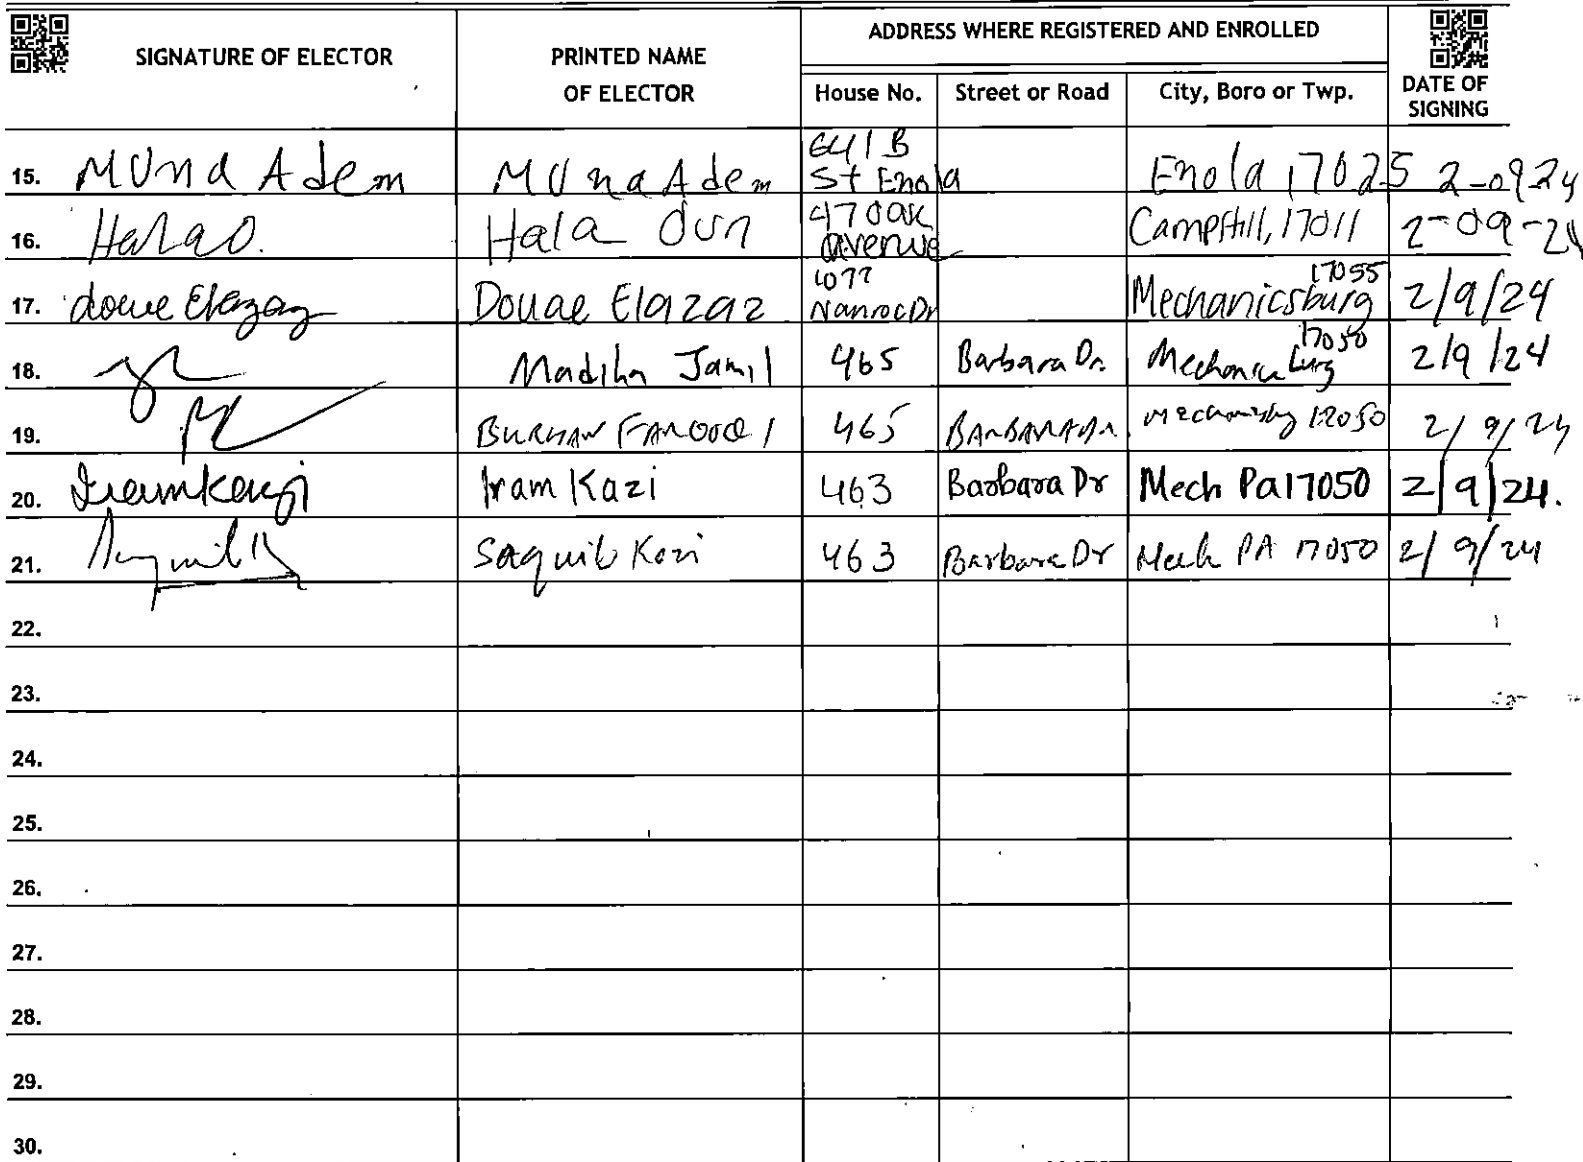 ADDRESS WHERE REGISTERED AND ENROLLED
SIGNATURE OF ELECTOR PRINTED NAME OF ELECTOR House No. Street or Road City, Boro or Twp. DATE OF SIGNING
15. MUna Adem MUna Adem 641 B St Enola Enola 17025 2-09-24
16. Hala O. Hala Oun 470ak avenue CampHill, 17011 2-09-24
17. Douae Elazaz 1077 Nanroc Dr Mechanicsburg 17055 2/9/24
18. Madiha Jamil 465 Barbara Dr. Mechanicsburg 17050 2/9/24
19. BURHAN FAROOQI 465 BARBARA Dr. 17050 2/9/24
20. Iram Kazi Iram Kazi 463 Barbara Dr Mech Pa 17050 2/9/24.
21. Saquib Kazi 463 Barbara Dr Mech PA 17050 2/9/24
22.
23.
24.
25.
26.
27.
28.
29.
30.